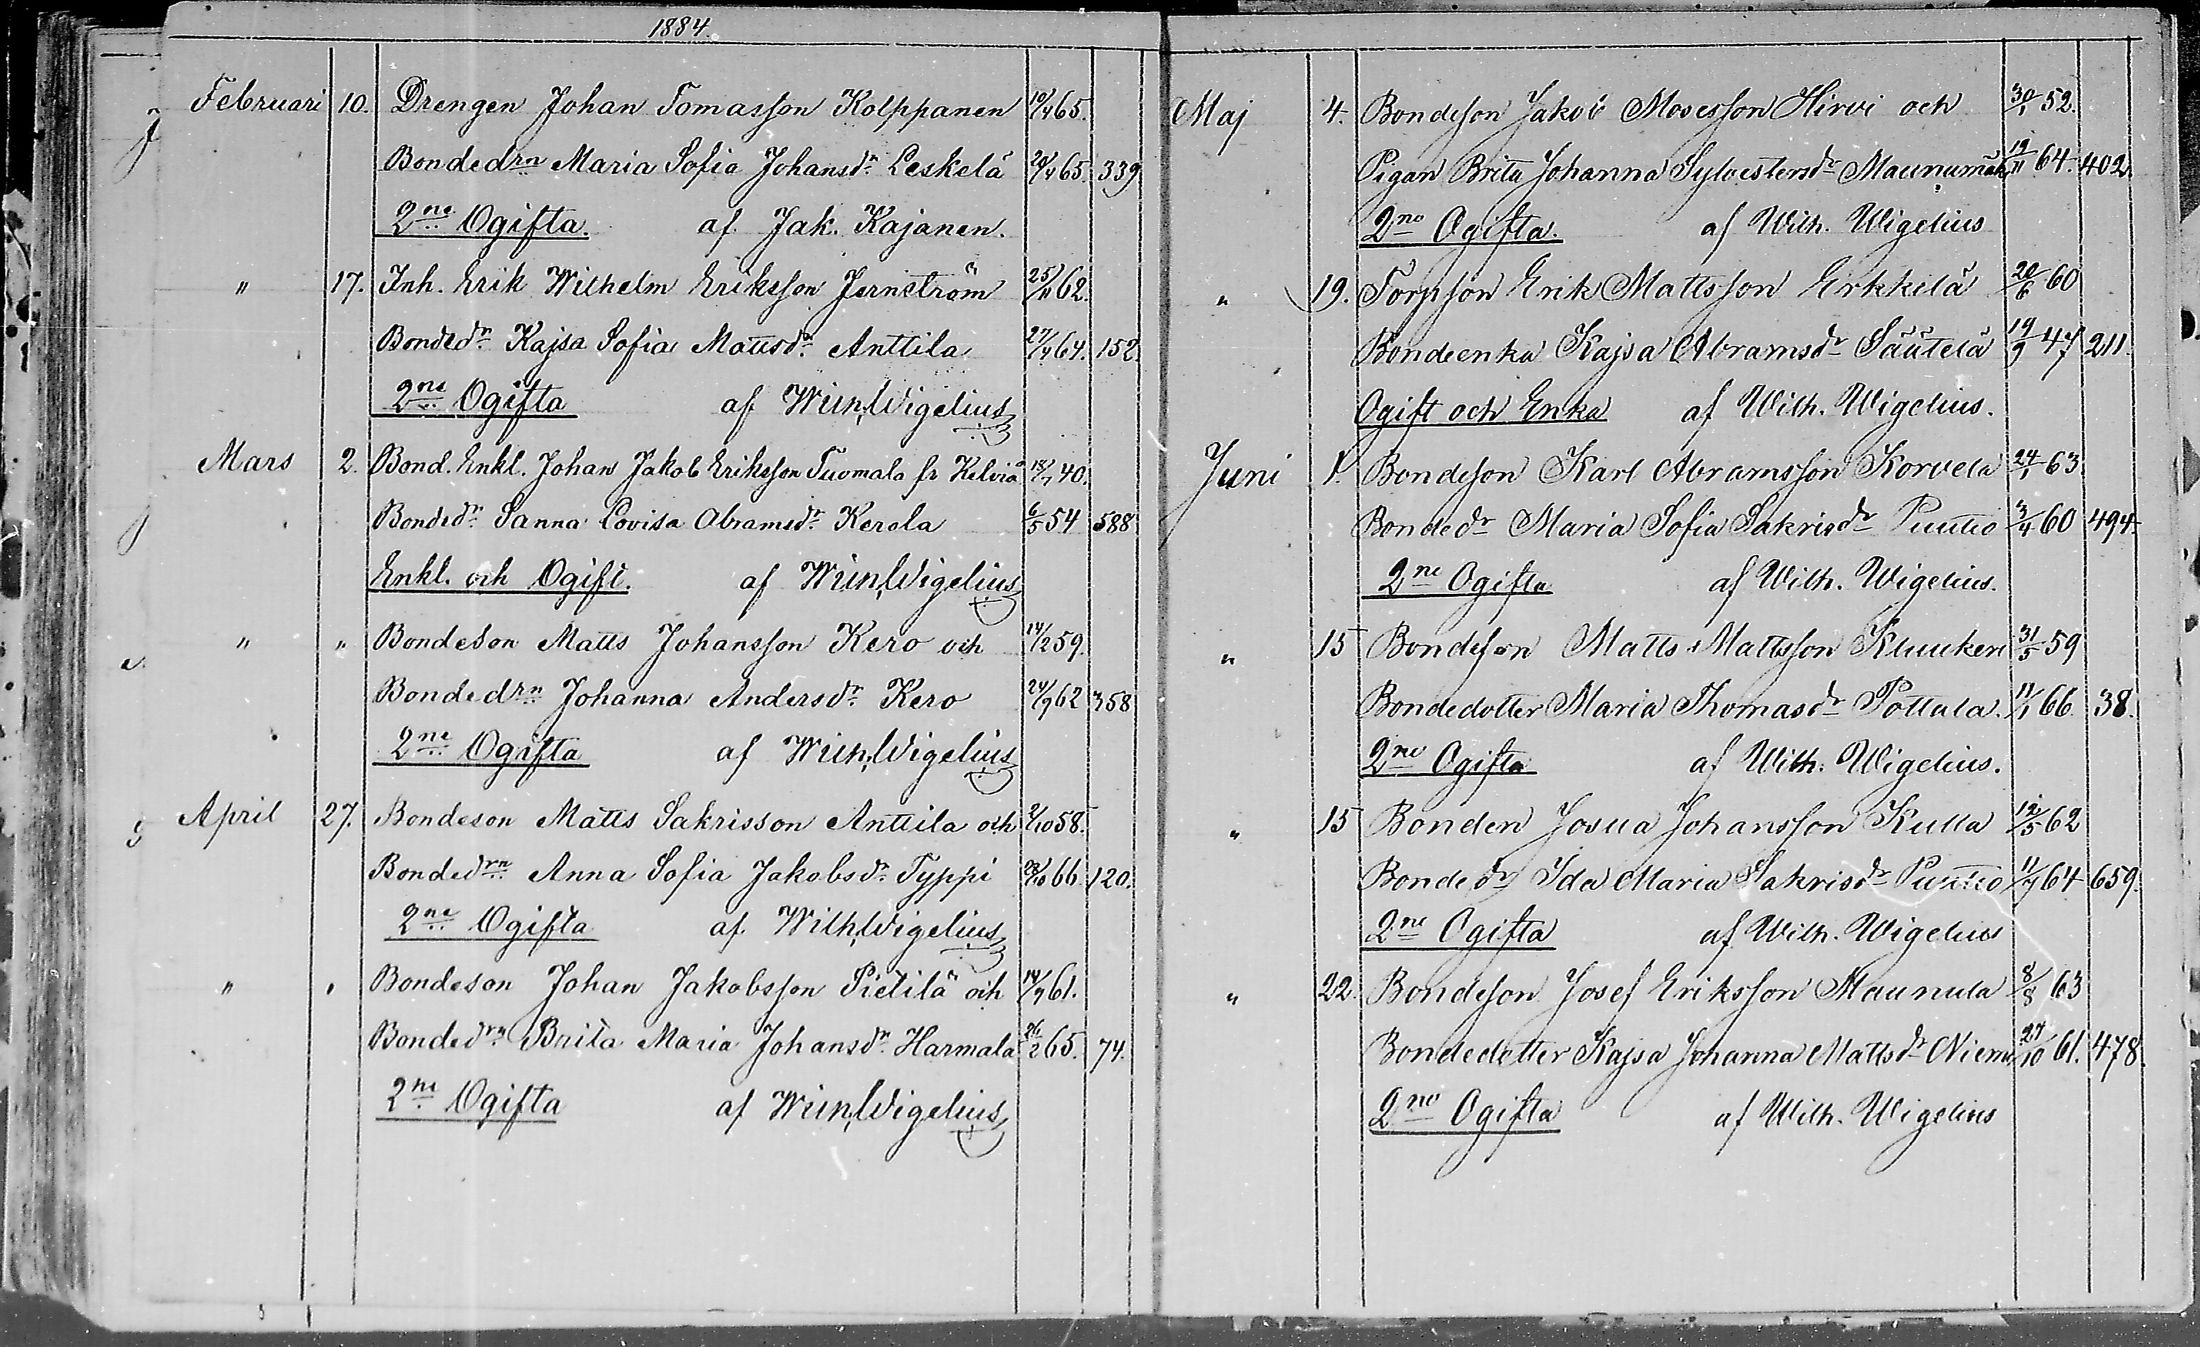 1884.
Februari 10. Drengen Johan Tomasson Kolppanen 10/4 65.
Bondedrn Maria Sofia Johansdr Leskelä 20/4 65. 339
2ne Ogifta. af Jak. Kajanen.
" 17. Inh. Erik Wilhelm Eriksson Jernström 25/11 62.
Bondedr Kajsa Sofia Mattsdr Anttila 27/4 64. 152.
2ne Ogifta af Wilh. Wigelius
Mars 2. Bond. Enkl. Johan Jakob Eriksson Tuomala fr Kelviå 40.
Bondedr Sanna Lovisa Abramsdr Kerola 6/5 54 588
Enkl. och Ogift. af Wilh. Wigelius
" " Bondeson Matts Johansson Kero och 14/12 59.
Bondedrn Johanna Andersdr Kero 24/9 62 358
2ne Ogifta af Wilh. Wigelius
April 27. Bondeson Matts Sakrisson Anttila och 2/10 58.
Bondedrn Anna Sofia Jakobsdr Typpi 66. 120.
2ne Ogifta af Wilh. Wigelius
" " Bondeson Johan Jakobsson Pietilä och 14/9 61.
Bondedrn Brita Maria Johansdr Harmala 26/2 65. 74.
2ne Ogifta af Wilh. Wigelius
Maj 4. Bondeson Jakob Mosesson Hirvi och 30/1 52.
Pigan Brita Johanna Sylvestersdr Maunumäki 19/11 64. 402.
2ne Ogifta. af Wilh. Wigelius
" 19. Torpson Erik Mattsson Erkkilä 20/6 60
Bondeenka Kajsa Abramsdr Säutelä 19/9 47 211.
Ogift och Enka af Wilh. Wigelius.
Juni 1. Bondeson Karl Abramsson Korvela 24/1 63
Bondedr Maria Sofia Sakrisdr Puutio 3/4 60 494.
2ne Ogifta af Wilh. Wigelius.
" 15 Bondeson Matts Mattsson Kluukeri 31/5 59
Bondedotter Maria Thomasdr Pottala. 11/1 66. 38.
2ne Ogifta af Wilh. Wigelius.
" 15 Bonden Josua Johansson Kulla 12/5 62
Bondedr Ida Maria Sakrisdr Puutio 11/7 64 659.
2ne Ogifta af Wilh. Wigelius
" 22. Bondeson Josef Eriksson Maunula 8/8 63
Bondedotter Kajsa Johanna Mattsdr Niemi 27/10 61. 478
2ne Ogifta af Wilh. Wigelius